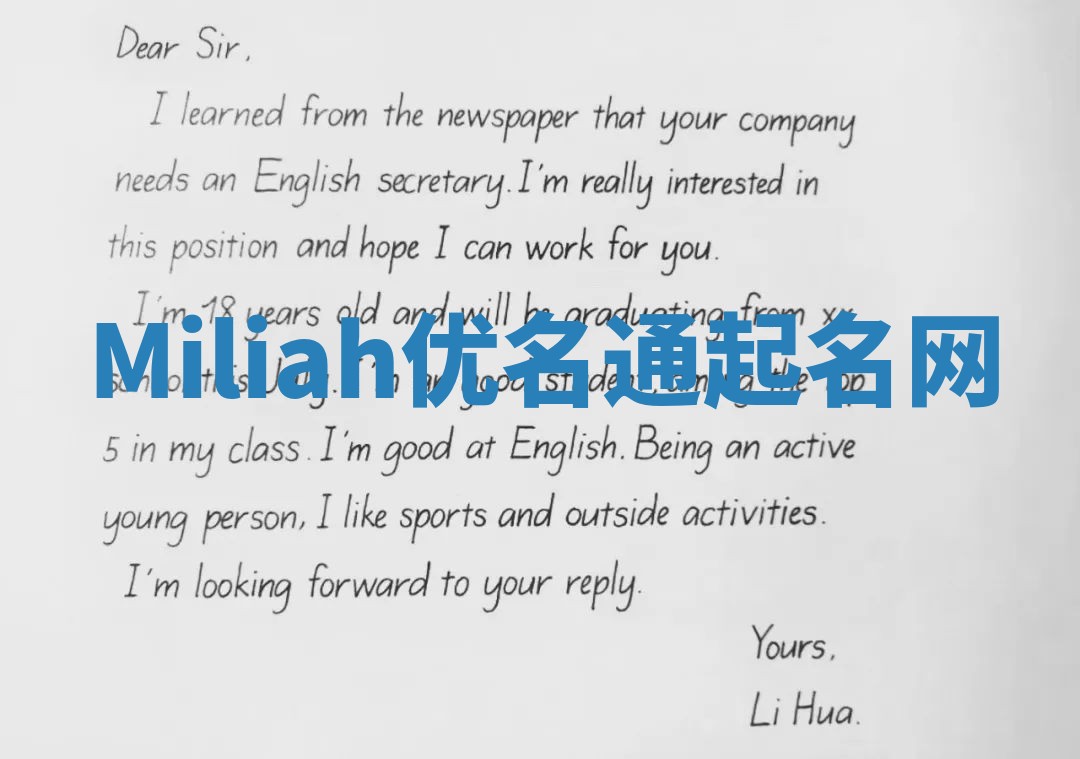 Dear Sir,
I learned from the newspaper that your company
needs an English secretary. I'm really interested in
this position and hope I can work for you.
I'm 18 years old and will be graduating from xx
Miliah优名通起名网
school this July. I'm a good student, the top
5 in my class. I'm good at English. Being an active
young person, I like sports and outside activities.
I'm looking forward to your reply.
Yours,
Li Hua.